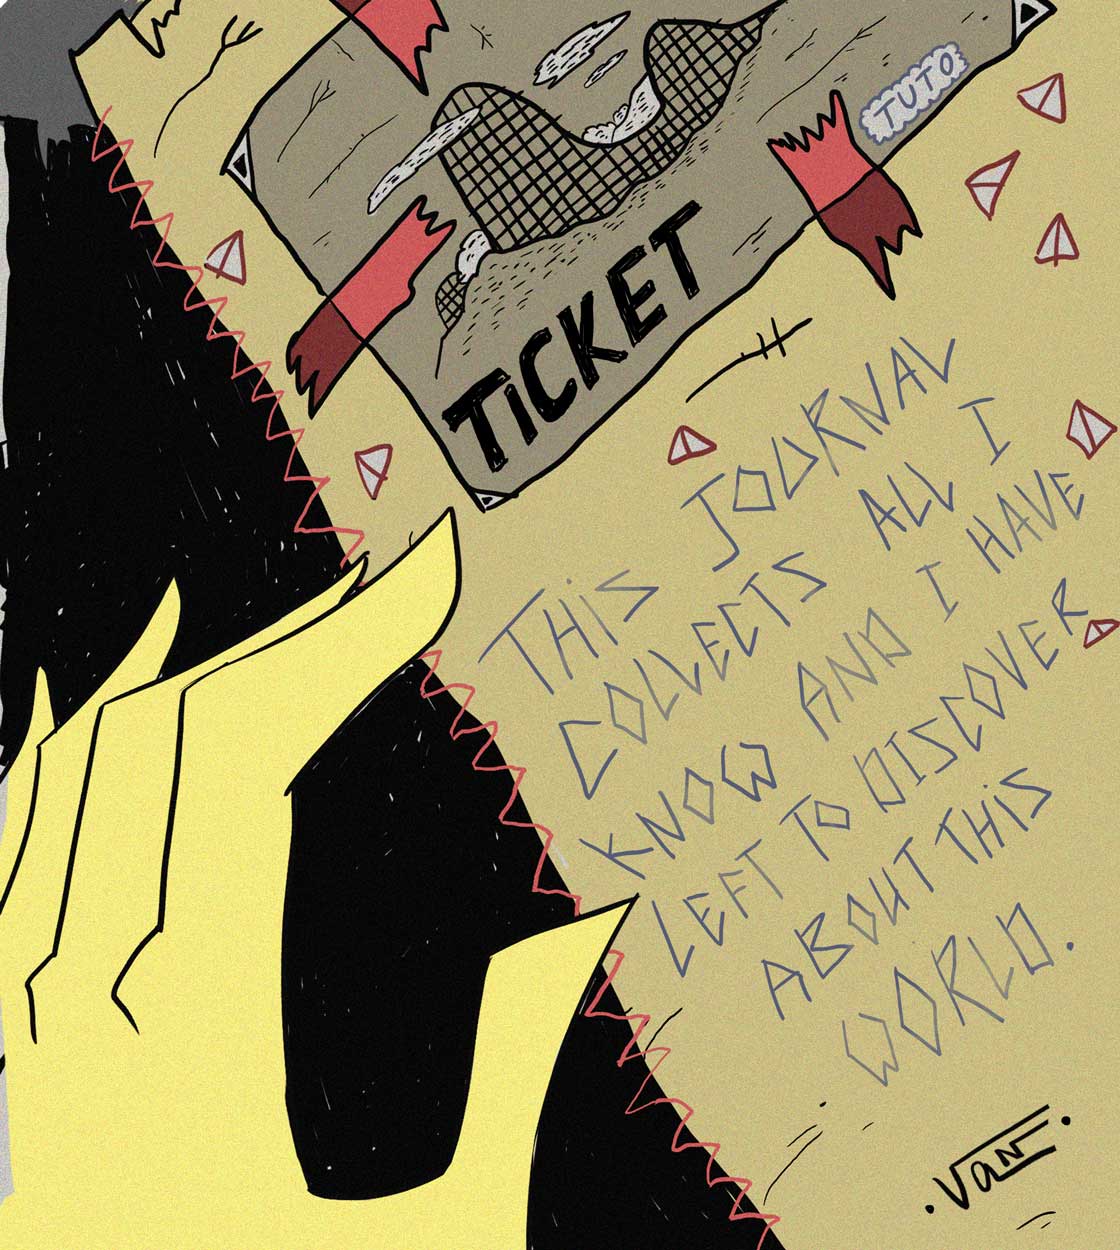 TUTO
TiCKET
THiS JOURNAL
COLLECTS ALL I
KNOW AND I HAVE
LEFT To DISCOVER
ABOUT THiS
WORLD.